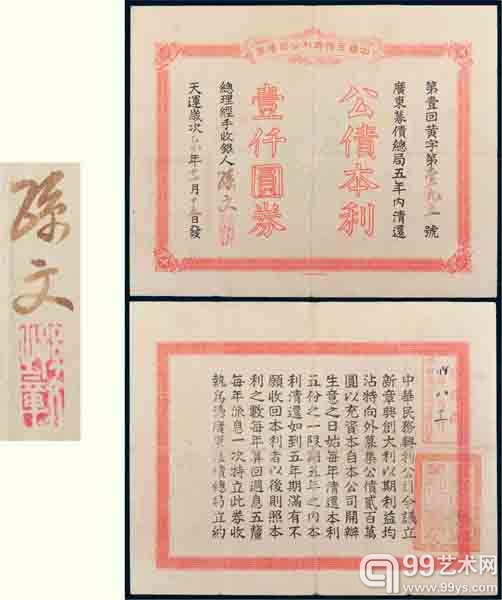 第壹回黄字第號
廣東募債總局五年內清還
公債本利
壹仟圓券
總理經手收銀人 孫文
天運歲次乙巳年十一月十五日發
孫文
中華民務興利公司今議立
新章興創大利以期利益均
沾特向外募集公債貳百萬
圓以充資本自本公司開辦
生意之日始每年清還本利
五份之一限期五年之內本
利清還如到五年期滿有不
願收回本利者以後則照本
利之數每年算回週息五釐
每年派息一次持立此券收
執爲憑廣東募債總局立約
99艺术网
www.99ys.com